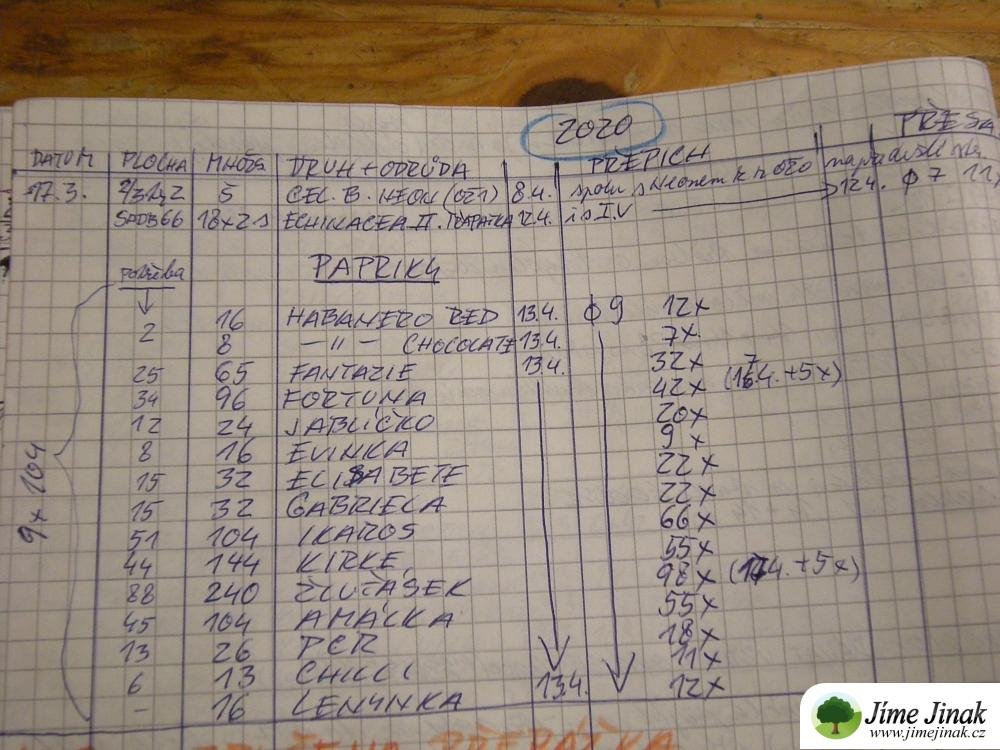 2020
PŘESA
DATUM PLOCHA MNOŽS DRUH + ODRŮDA PŘEPICH
17.3. 2/3 5 CEL. B. NEON (OŽ1) 8.4. spolu s Neonem k n OŽO 12.4. φ 7 11
SADB66 18x2.s ECHINACEA II. 12.4. i s I.V
potřeba PAPRIKY
2 16 HABANERO RED 13.4. φ 9 12x
8 — " — CHOCOLATE 13.4. 7x
25 65 FANTAZIE 13.4. 32x
34 96 FORTUNA 42x (17.4. +5x)
12 24 JABLÍČKO 20x
8 16 EVINKA 9x
15 32 ELISABETE 22x
15 32 GABRIELA 22x
51 104 IKAROS 66x
44 144 KIRKE 55x
88 240 ŽLUŤÁSEK 98x (17.4. +5x)
45 104 AMÁLKA 55x
13 26 PCR 18x
6 13 CHILLI 11x
- 16 LENYNKA 13.4. 12x
9x104
PŘEPÁŽKA
Jíme Jinak
www.jimejinak.cz